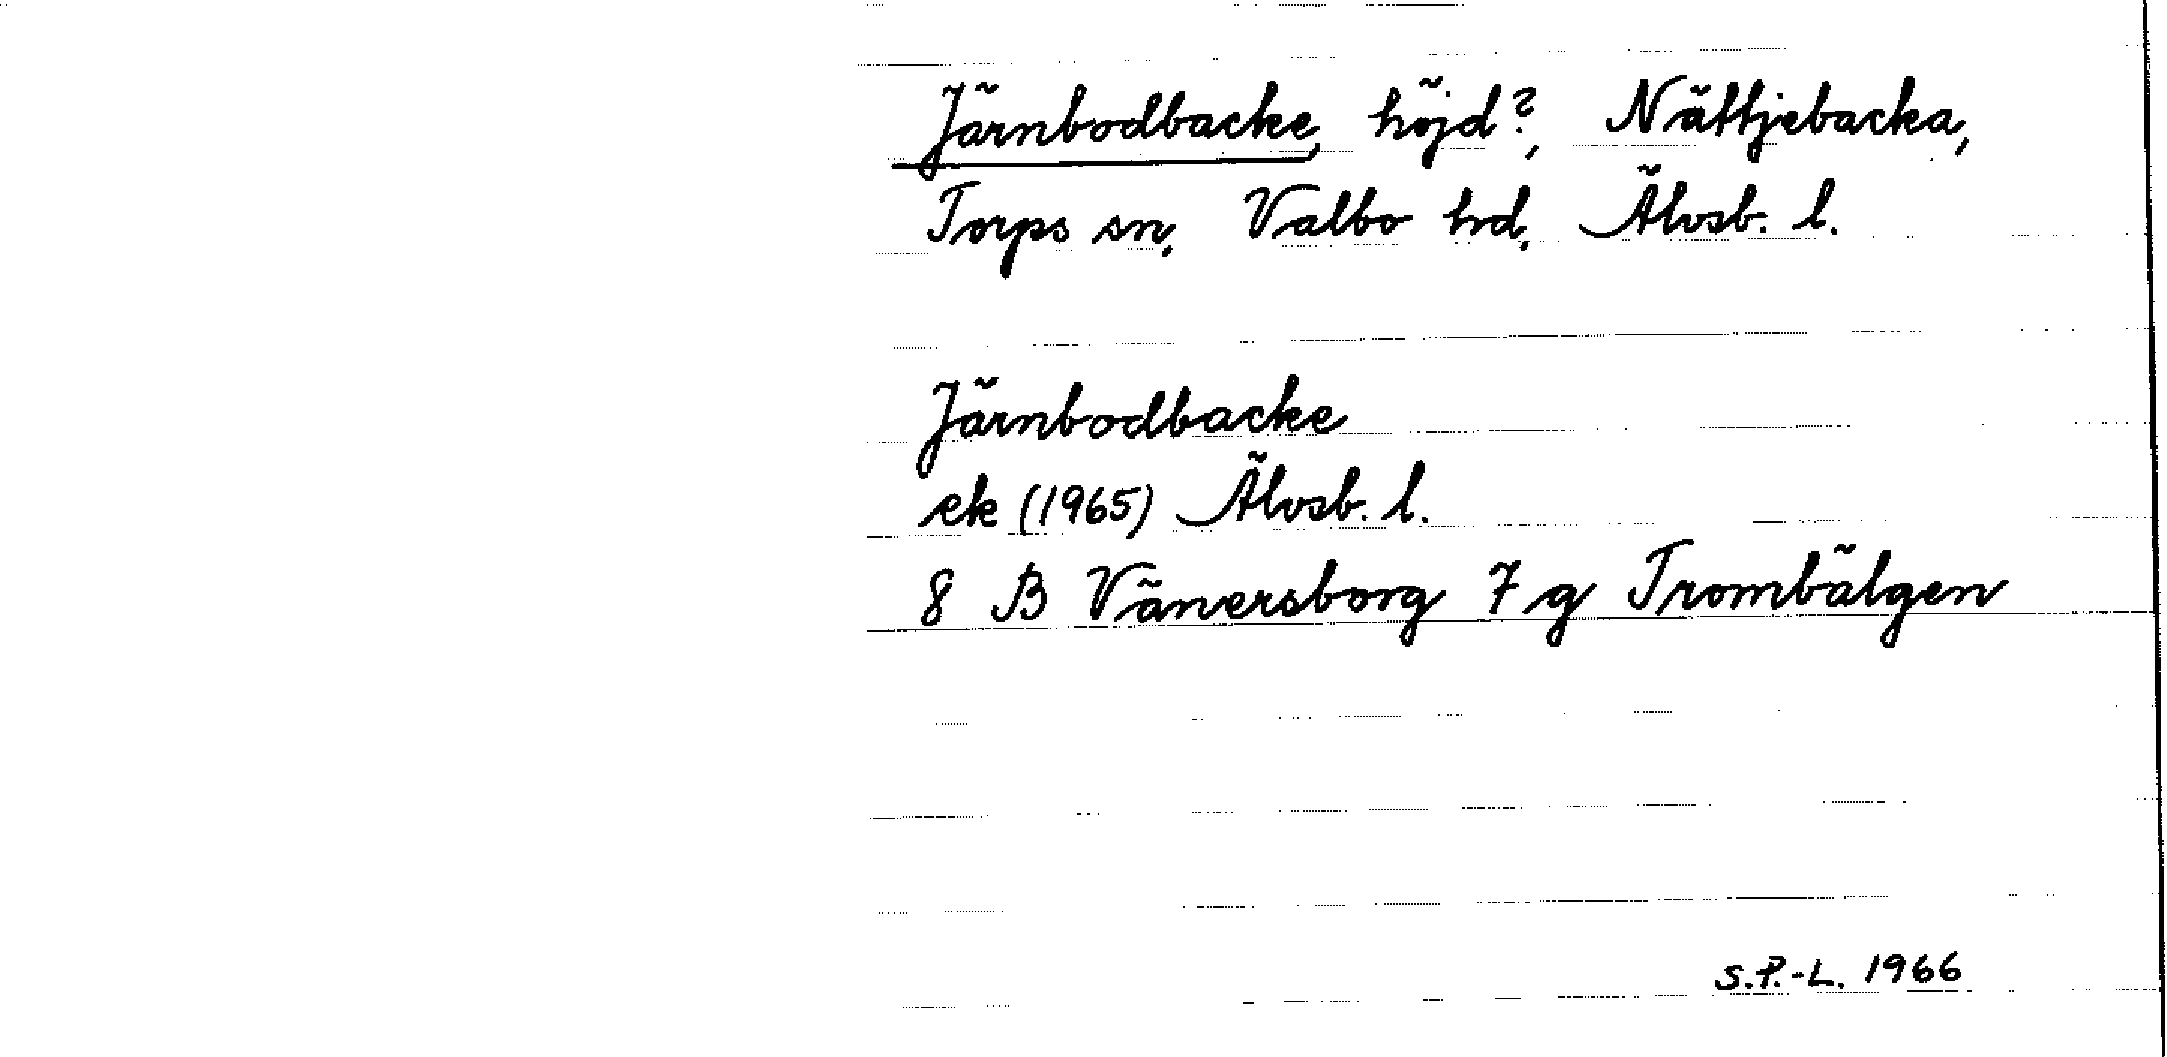 Järnbodbacke, höjd?, Nättjebacka,
Torps sn, Valbo hd, Älvsb. l.
Järnbodbacke
ek (1965) Älvsb. l.
8 B Vänersborg 7 g Trombälgen
S.P.-L. 1966